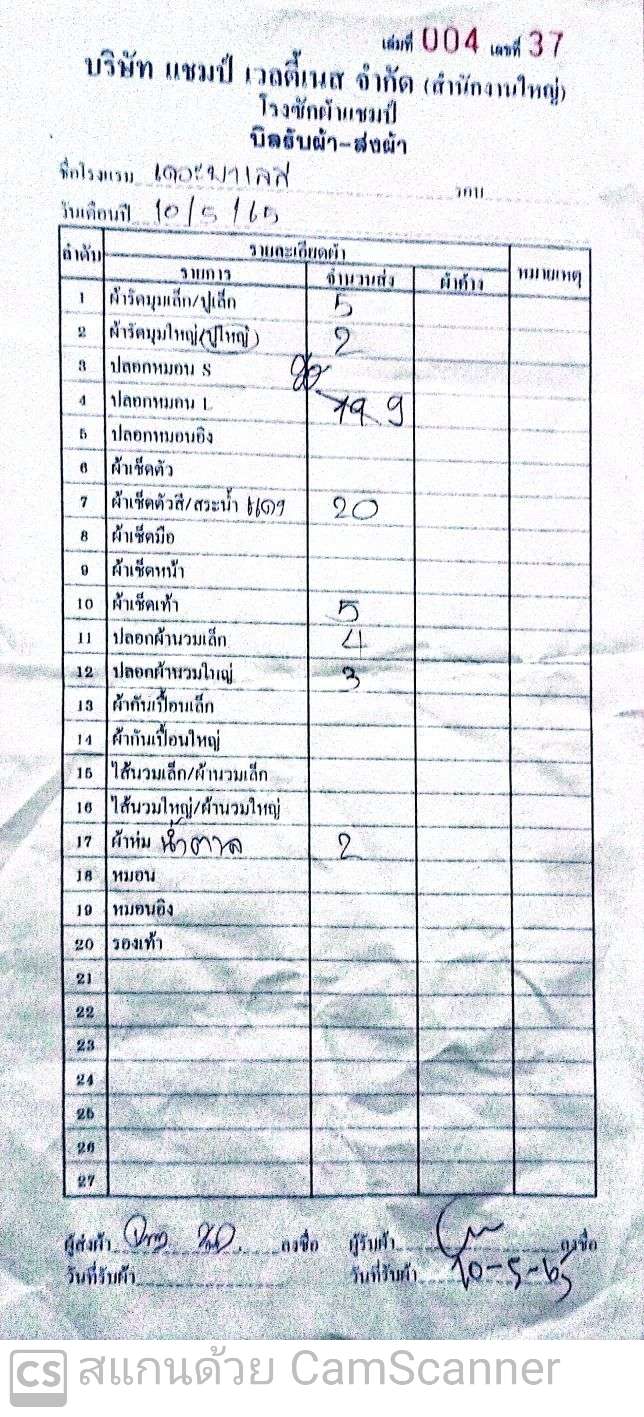 เล่มที่ 004 เลขที่ 37
บริษัท แชมป์ เวลตี้เนส จำกัด (สำนักงานใหญ่)
โรงซักผ้าแชมป์
บิลรับผ้า-ส่งผ้า
ชื่อโรงแรม เดอะพาเลส รอบ
วันเดือนปี 10/5/65
ลำดับ รายละเอียดผ้า หมายเหตุ
รายการ จำนวนส่ง ผ้าค้าง
1 ผ้ารัดมุมเล็ก/ปูเล็ก 5
2 ผ้ารัดมุมใหญ่(ปูใหญ่) 2
3 ปลอกหมอน S
4 ปลอกหมอน L 19 9
5 ปลอกหมอนอิง
6 ผ้าเช็ดตัว
7 ผ้าเช็ดตัวสี/สระน้ำ 20
8 ผ้าเช็ดมือ
9 ผ้าเช็ดหน้า
10 ผ้าเช็ดเท้า 5
11 ปลอกผ้านวมเล็ก 4
12 ปลอกผ้านวมใหญ่ 3
13 ผ้ากันเปื้อนเล็ก
14 ผ้ากันเปื้อนใหญ่
15 ไส้นวมเล็ก/ผ้านวมเล็ก
16 ไส้นวมใหญ่/ผ้านวมใหญ่
17 ผ้าห่ม น้ำตาล 2
18 หมอน
19 หมอนอิง
20 รองเท้า
21
22
23
24
25
26
27
ผู้ส่งผ้า ลงชื่อ ผู้รับผ้า ลงชื่อ
วันที่รับผ้า วันที่รับผ้า 10-5-65
CS สแกนด้วย CamScanner